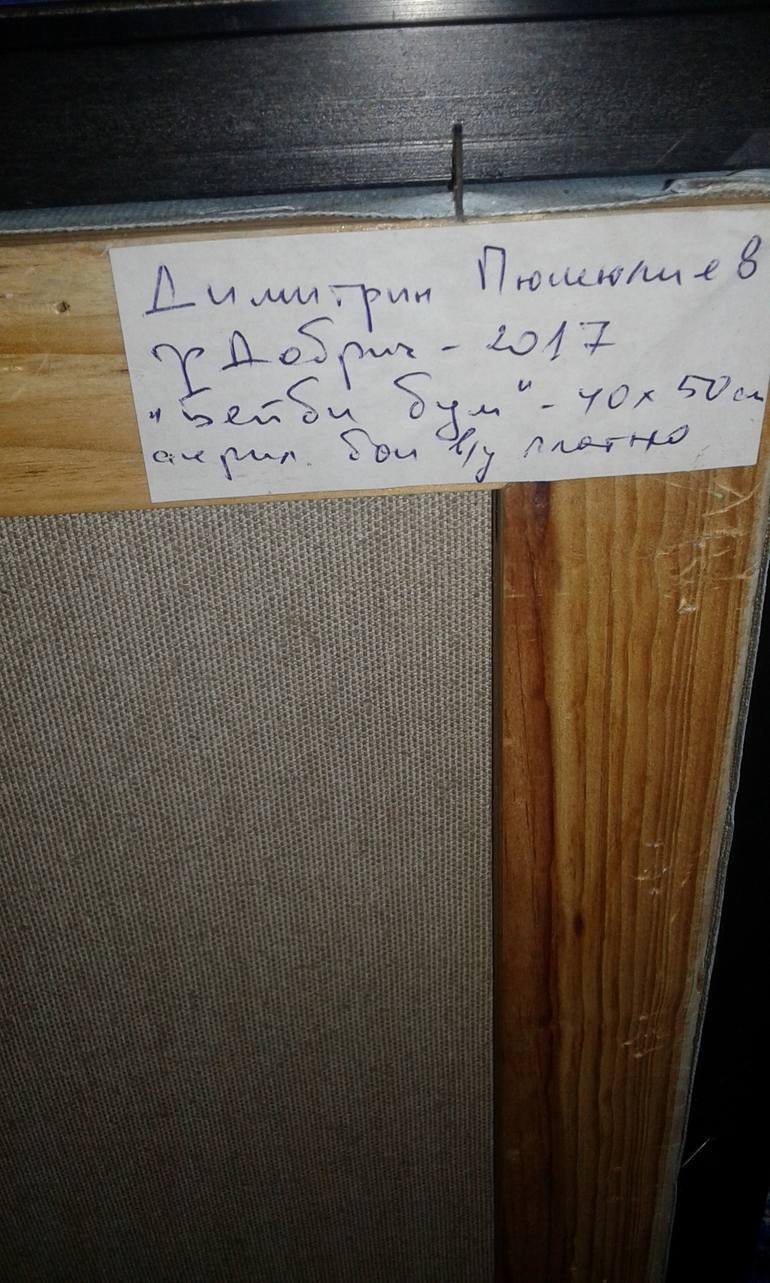 Димитрин
гр Добрич - 2017
„Бейби бум" - 40 х 50 см
акрил. бои в/у платно